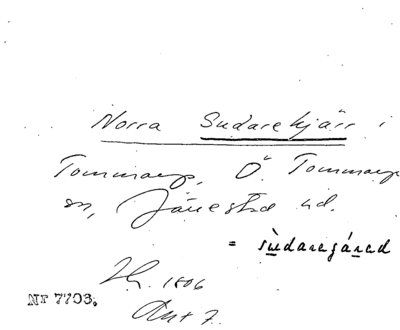 Norra Sudarekjärr i
Tommarp, Ö. Tommarp
sn, Järrestad hd.
= sùdaregáred
Nr 7703.
1806